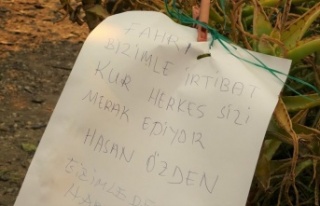 FAHRİ
BİZİMLE İRTİBAT
KUR HERKES SİZİ
MERAK EDİYOR
HASAN ÖZDEN
BİZİMLE DE